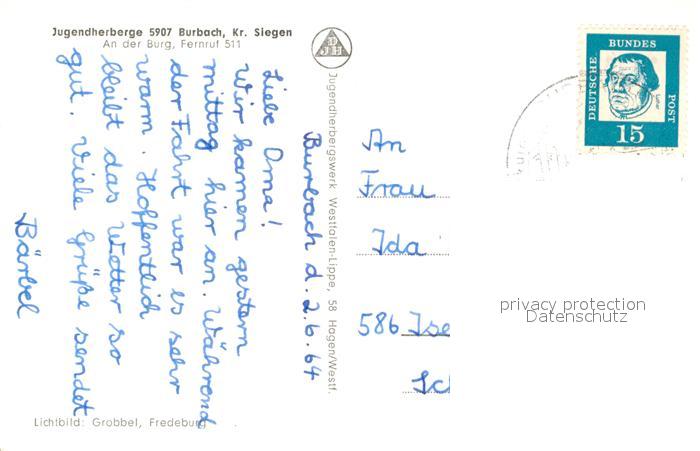 Jugendherberge 5907 Burbach, Kr. Siegen
An der Burg, Fernruf 511
DJH
Jugendherbergswerk Westfalen-Lippe, 58 Hagen/Westf.
Burbach d. 2.6.64
Liebe Oma!
Wir kamen gestern
mittag hier an. Während
der Fahrt war es sehr
warm. Hoffentlich
bleibt das Wetter so
gut. Viele Grüße sendet
Bärbel
Lichtbild: Grobbel, Fredeburg
DEUTSCHE
BUNDES
POST
15
An
Frau
Ida
586 Ise
Sc
privacy protection
Datenschutz